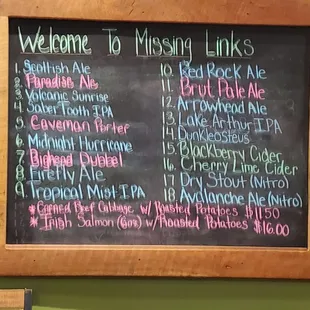 Welcome To Missing Links
1. Scottish Ale
2. Paradise Ale
3. Volcanic Sunrise
4. Saber Tooth IPA
5. Caveman Porter
6. Midnight Hurricane
7. Bighead Dubbel
8. Firefly Ale
9. Tropical Mist IPA
10. Red Rock Ale
11. Brut Pale Ale
12. Arrowhead Ale
13. Lake Arthur IPA
14. Dunkleosteus
15. Blackberry Cider
16. Cherry Lime Cider
17. Dry Stout (Nitro)
18. Avalanche Ale (Nitro)
* Corned Beef Cabbage w/ Roasted Potatoes $11.50
* Irish Salmon (6oz) w/ Roasted Potatoes $16.00